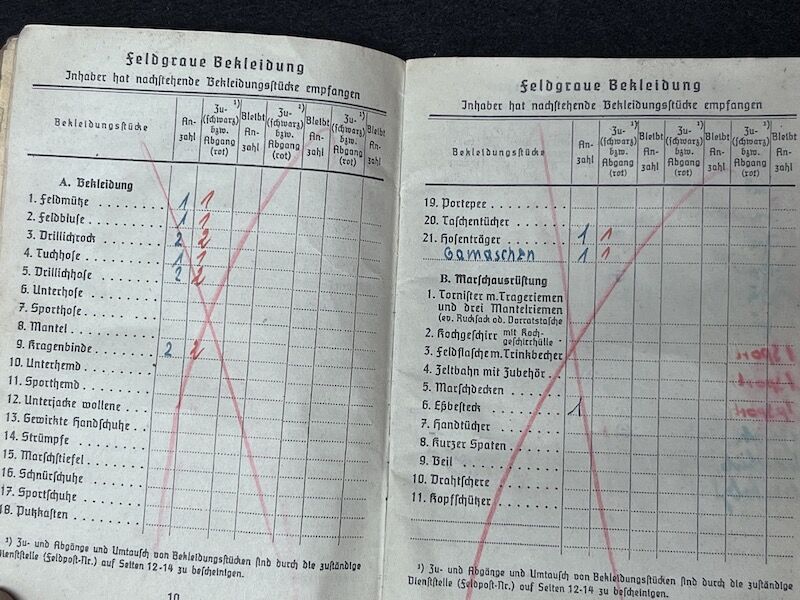 Feldgraue Bekleidung
Inhaber hat nachstehende Bekleidungsstücke empfangen
Bekleidungsstücke An-zahl Zu-¹) (schwarz) bzw. Abgang (rot) Bleibt An-zahl Zu-¹) (schwarz) bzw. Abgang (rot) Bleibt An-zahl Zu-¹) (schwarz) bzw. Abgang (rot) Bleibt An-zahl
A. Bekleidung
1. Feldmütze 1 1
2. Feldbluse 1 1
3. Drillichrock 2 2
4. Tuchhose 1 1
5. Drillichhose 2 2
6. Unterhose
7. Sporthose
8. Mantel
9. Kragenbinde 2 2
10. Unterhemd
11. Sporthemd
12. Unterjacke wollene
13. Gewirkte Handschuhe
14. Strümpfe
15. Marschstiefel
16. Schnürschuhe
17. Sportschuhe
18. Putzkasten
¹) Zu- und Abgänge und Umtausch von Bekleidungsstücken sind durch die zuständige
Dienststelle (Feldpost-Nr.) auf Seiten 12-14 zu bescheinigen.
10
Feldgraue Bekleidung
Inhaber hat nachstehende Bekleidungsstücke empfangen
Bekleidungsstücke An-zahl Zu-¹) (schwarz) bzw. Abgang (rot) Bleibt An-zahl Zu-¹) (schwarz) bzw. Abgang (rot) Bleibt An-zahl Zu-¹) (schwarz) bzw. Abgang (rot) Bleibt An-zahl
19. Portepee
20. Taschentücher
21. Hosenträger 1 1
Gamaschen 1 1
B. Marschausrüstung
1. Tornister m. Trageriemen
und drei Mantelriemen
(ev. Rucksack od. Vorratstasche
2. Kochgeschirr mit Koch-
geschirrhülle
3. Feldflasche m. Trinkbecher
4. Zeltbahn mit Zubehör
5. Marschdecken
6. Eßbesteck 1
7. Handtücher
8. Kurzer Spaten
9. Beil
10. Drahtschere
11. Kopfschützer
¹) Zu- und Abgänge und Umtausch von Bekleidungsstücken sind durch die zuständige
Dienststelle (Feldpost-Nr.) auf Seiten 12-14 zu bescheinigen.